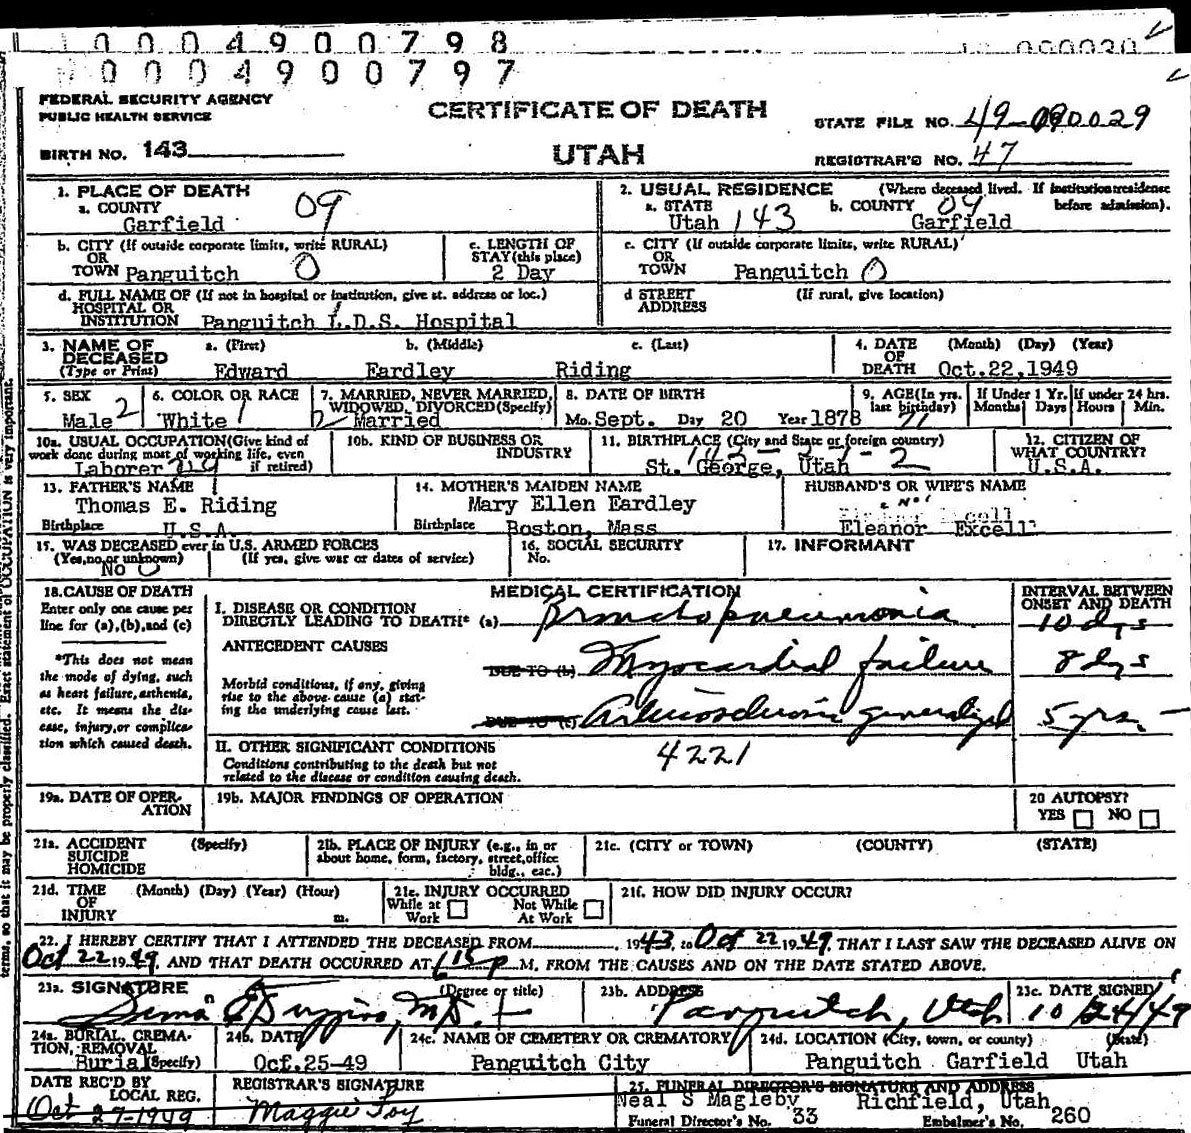 0004900798
0004900797
FEDERAL SECURITY AGENCY
PUBLIC HEALTH SERVICE
CERTIFICATE OF DEATH
STATE FILE NO. 49-090029
BIRTH NO. 143
UTAH
REGISTRAR'S NO. 47
1. PLACE OF DEATH
a. COUNTY 09
Garfield
2. USUAL RESIDENCE (Where deceased lived. If institution:residence before admission).
a. STATE b. COUNTY 09
Utah 143 Garfield
b. CITY (If outside corporate limits, write RURAL)
OR
TOWN Panguitch 0
c. LENGTH OF
STAY (this place)
2 Day
c. CITY (If outside corporate limits, write RURAL)
OR
TOWN Panguitch 0
d. FULL NAME OF (If not in hospital or institution, give st. address or loc.)
HOSPITAL OR
INSTITUTION Panguitch L.D.S. Hospital
d STREET (If rural, give location)
ADDRESS
3. NAME OF DECEASED a. (First) b. (Middle) c. (Last)
(Type or Print) Edward Eardley Riding
4. DATE (Month) (Day) (Year)
OF
DEATH Oct.22,1949
5. SEX
Male 2
6. COLOR OR RACE
White 1
7. MARRIED, NEVER MARRIED,
WIDOWED, DIVORCED(Specify)
2 Married
8. DATE OF BIRTH
Mo. Sept. Day 20 Year 1878
9. AGE(In yrs. last birthday)
71
If Under 1 Yr. Months Days
If under 24 hrs. Hours Min.
10a. USUAL OCCUPATION(Give kind of
work done during most of working life, even
if retired)
Laborer
10b. KIND OF BUSINESS OR
INDUSTRY
11. BIRTHPLACE (City and State or foreign country)
St. George, Utah
12. CITIZEN OF
WHAT COUNTRY?
U.S.A.
13. FATHER'S NAME
Thomas E. Riding
Birthplace U.S.A.
14. MOTHER'S MAIDEN NAME
Mary Ellen Eardley
Birthplace Boston, Mass
HUSBAND'S OR WIFE'S NAME
Eleanor Excell
15. WAS DECEASED ever in U.S. ARMED FORCES
(Yes,no,or unknown) (If yes, give war or dates of service)
No 0
16. SOCIAL SECURITY
No.
17. INFORMANT
18. CAUSE OF DEATH
Enter only one cause per
line for (a),(b),and (c)
*This does not mean
the mode of dying, such
as heart failure,asthenia,
etc. It means the dis-
ease, injury,or complica-
tion which caused death.
MEDICAL CERTIFICATION
I. DISEASE OR CONDITION
DIRECTLY LEADING TO DEATH* (a) Bronchopneumonia
ANTECEDENT CAUSES
DUE TO (b) Myocardial failure
Morbid conditions, if any, giving
rise to the above cause (a) stat-
ing the underlying cause last.
DUE TO (c) Arteriosclerosis generalized
INTERVAL BETWEEN
ONSET AND DEATH
10 dys
8 dys
5 yrs
II. OTHER SIGNIFICANT CONDITIONS
Conditions contributing to the death but not
related to the disease or condition causing death.
4221
19a. DATE OF OPER-
ATION
19b. MAJOR FINDINGS OF OPERATION
20 AUTOPSY?
YES NO
21a. ACCIDENT (Specify)
SUICIDE
HOMICIDE
21b. PLACE OF INJURY (e.g., in or
about home, form, factory, street,office
bldg., eac.)
21c. (CITY or TOWN) (COUNTY) (STATE)
21d. TIME (Month) (Day) (Year) (Hour)
OF
INJURY m.
21e. INJURY OCCURRED
While at Work
Not While At Work
21f. HOW DID INJURY OCCUR?
22. I HEREBY CERTIFY THAT I ATTENDED THE DECEASED FROM 1943, to Oct 22 1949, THAT I LAST SAW THE DECEASED ALIVE ON
Oct 22 1949, AND THAT DEATH OCCURRED AT 6 15 p M. FROM THE CAUSES AND ON THE DATE STATED ABOVE.
23a. SIGNATURE (Degree or title)
M.D.
23b. ADDRESS
Panguitch, Utah
23c. DATE SIGNED
10/24/49
24a. BURIAL, CREMA-
TION, REMOVAL
Burial (Specify)
24b. DATE
Oct.25-49
24c. NAME OF CEMETERY OR CREMATORY
Panguitch City
24d. LOCATION (City, town, or county) (State)
Panguitch Garfield Utah
DATE REC'D BY
LOCAL REG.
Oct 27-1949
REGISTRAR'S SIGNATURE
Maggie Foy
25. FUNERAL DIRECTOR'S SIGNATURE AND ADDRESS
Neal S Magleby Richfield, Utah
Funeral Director's No. 33 Embalmer's No. 260
terms, so that it may be properly classified. Exact statement of OCCUPATION is very important.